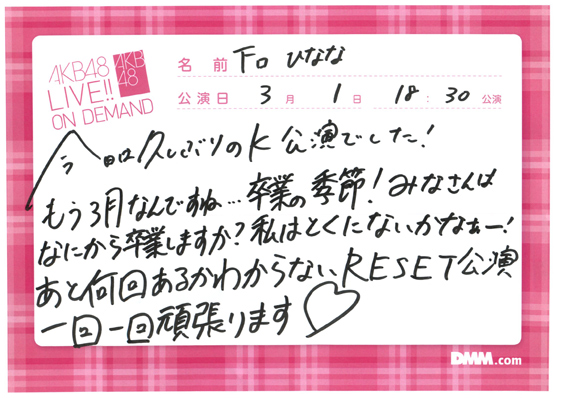 AKB48
LIVE!!
ON DEMAND
AKB
48
名前 下口 ひなな
公演日 3月 1日 18:30 公演
今日は久しぶりのK公演でした!
もう3月なんですね…卒業の季節!みなさんは
なにから卒業しますか?私はとくにないかなぁー!
あと何回あるかわからないRESET公演
一回一回頑張ります♡
DMM.com